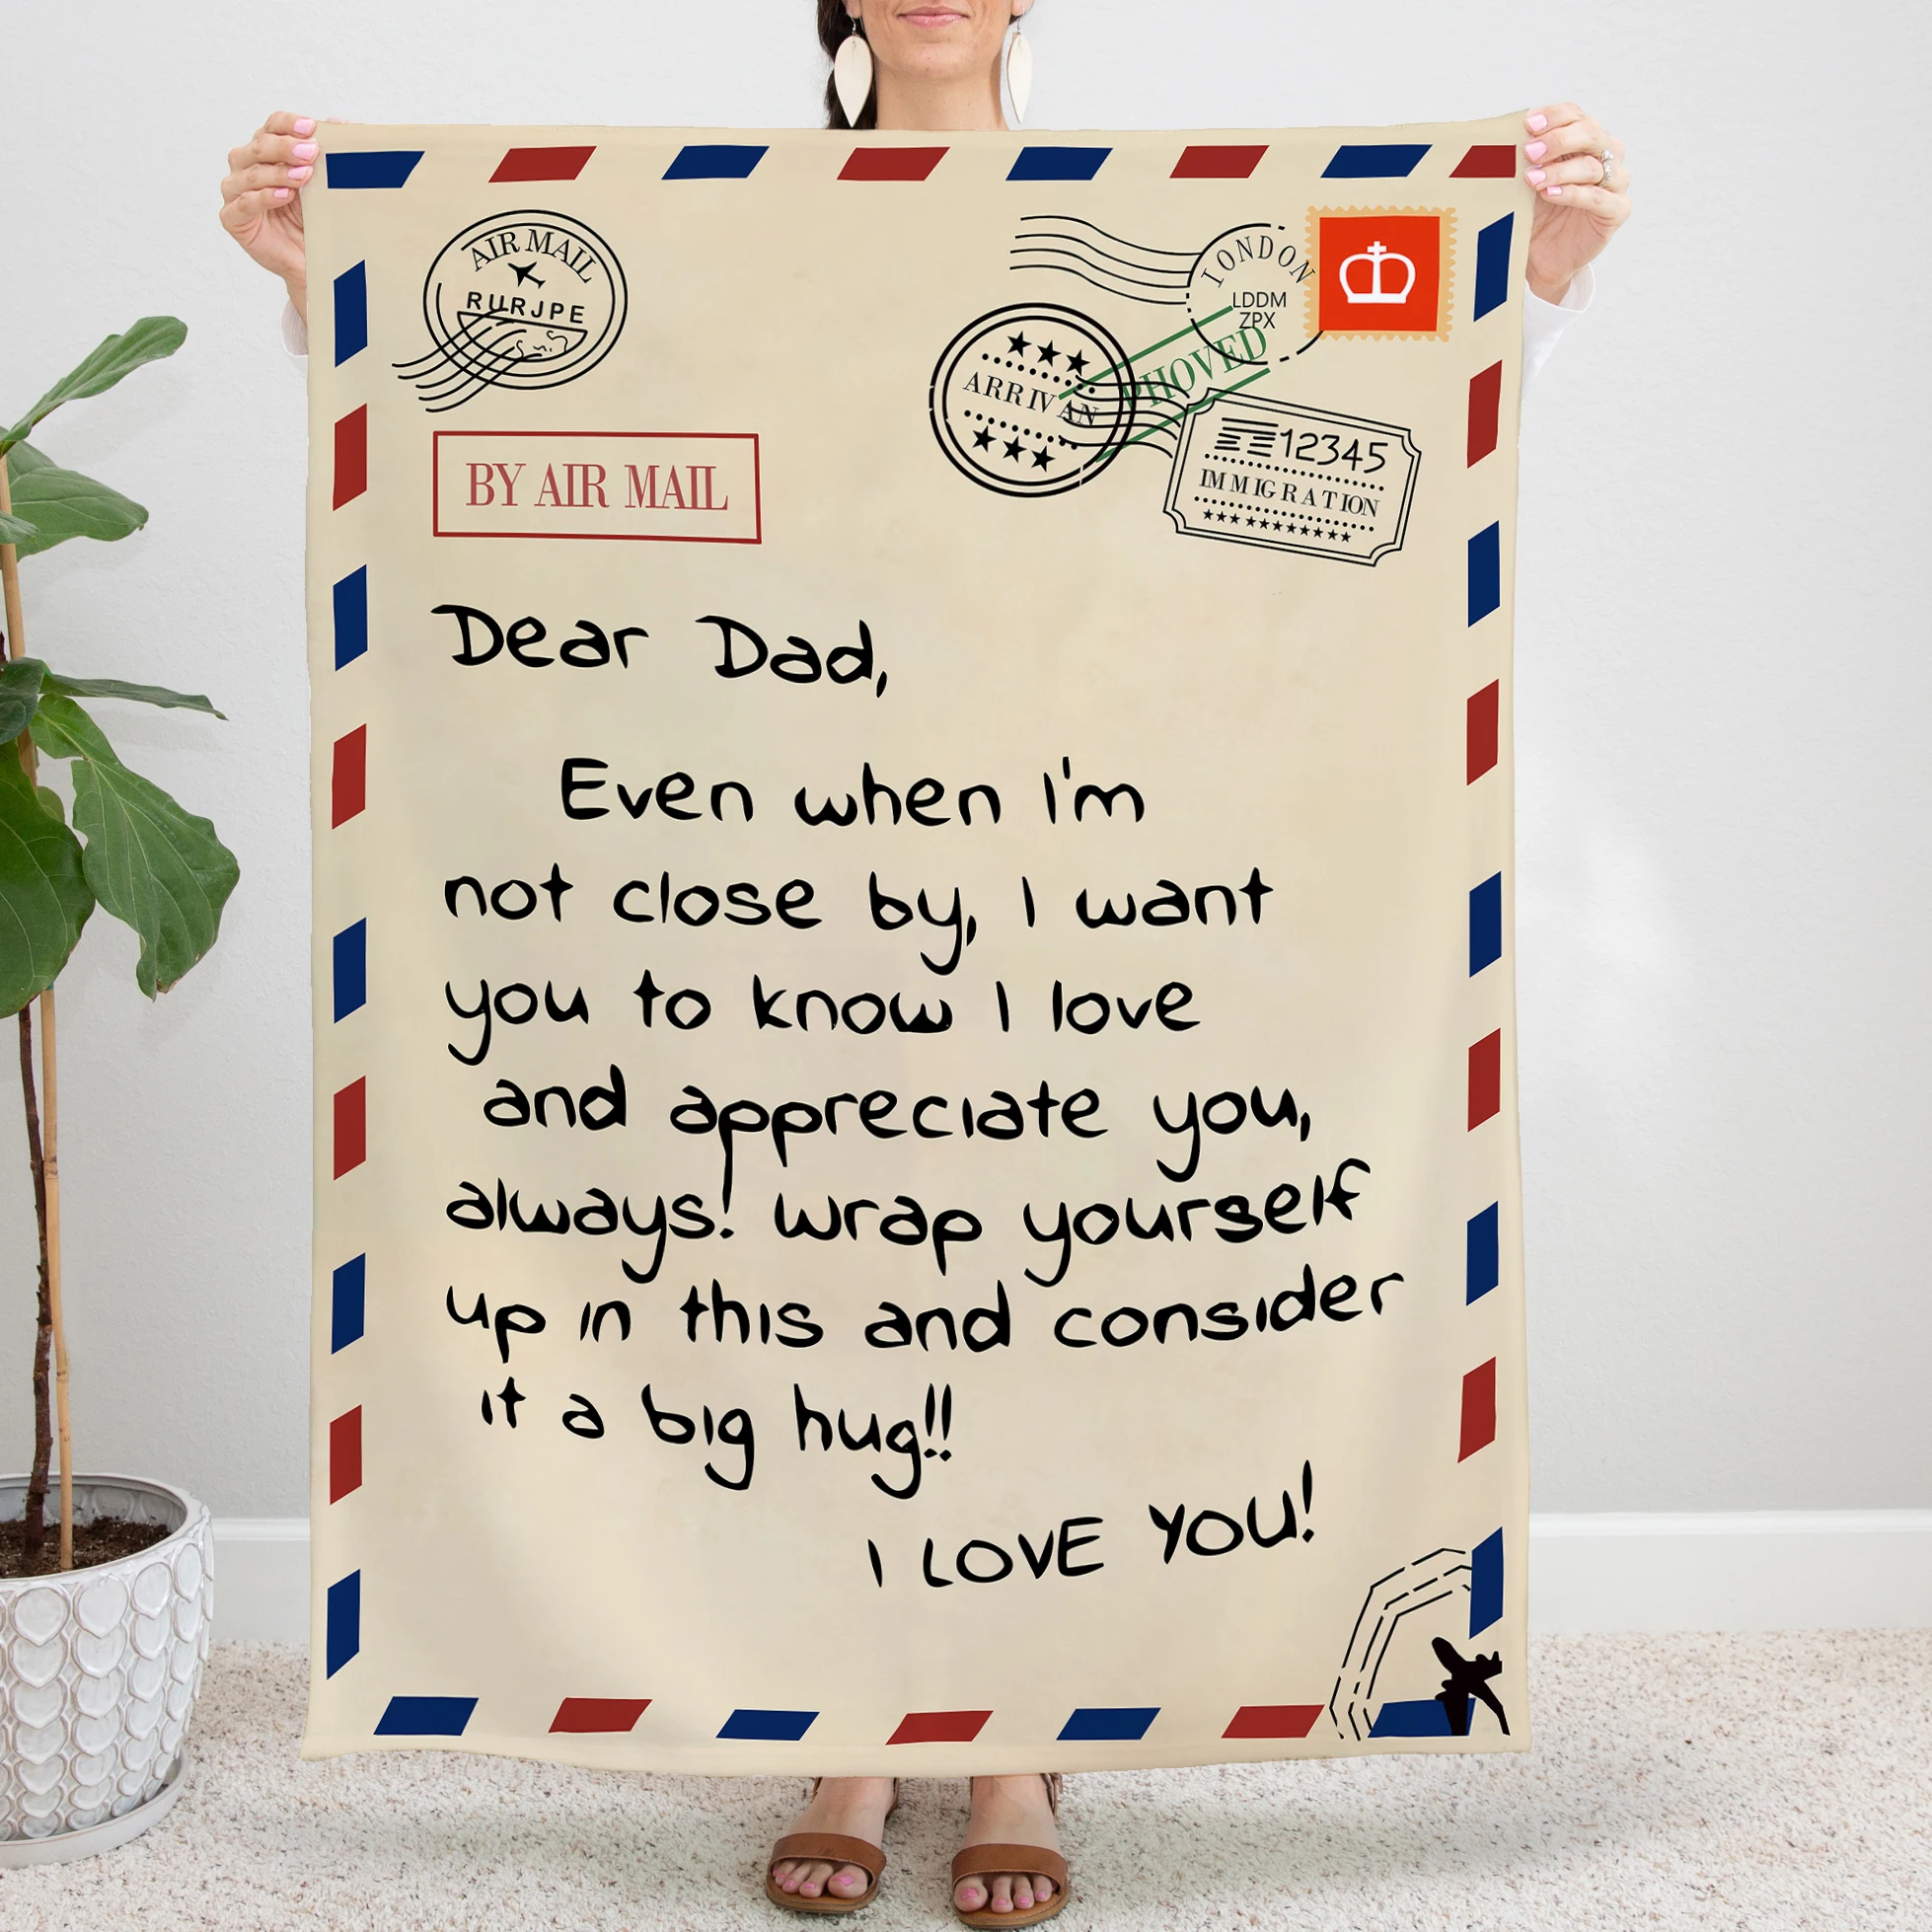 AIR MAIL
RURJPE
LONDON
LDDM
ZPX
PHOVED
ARRIVAN
12345
IMMIGRATION
BY AIR MAIL
Dear Dad,
Even when I'm
not close by, I want
you to know I love
and appreciate you,
always! Wrap yourself
up in this and consider
it a big hug!!
I LOVE YOU!